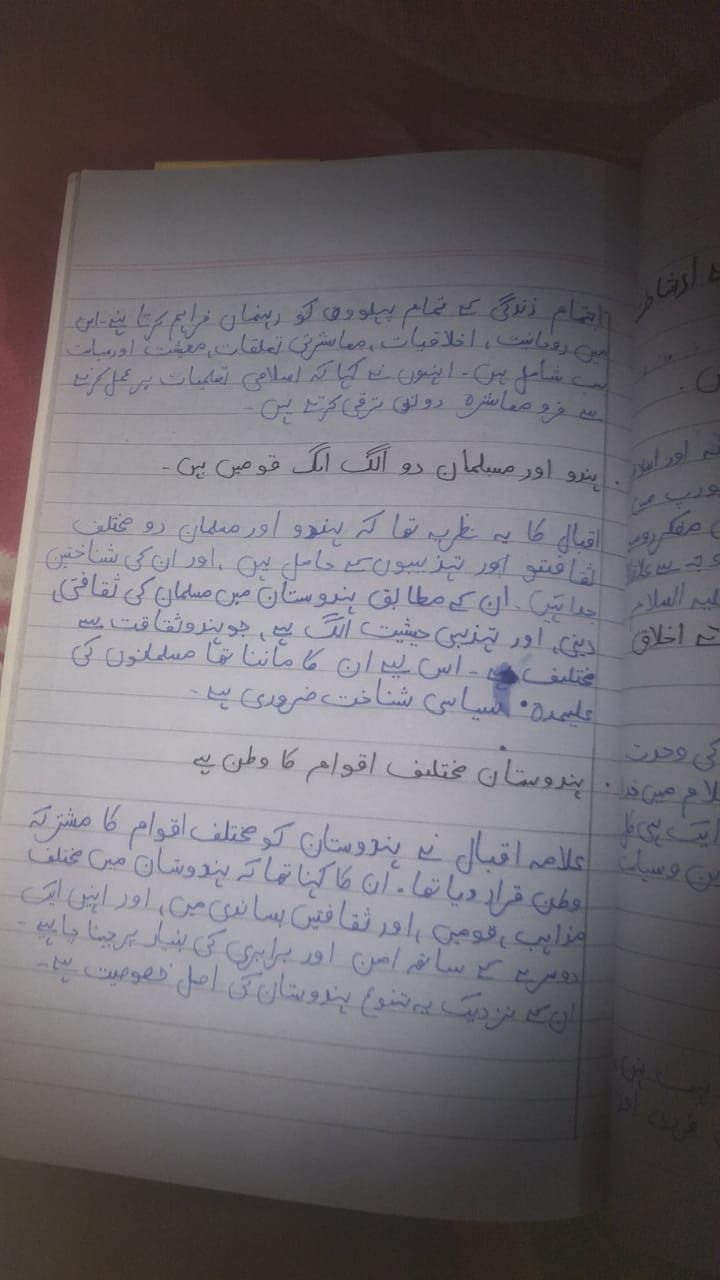 اجتمام زندگی کے تمام پہلووں کو رہنمائی فراہم کرتا ہے۔ اس
میں روحانیت، اخلاقیات، معاشرتی تعلقات، معیشت اور سیاست
سب شامل ہیں۔ انہوں نے کہا کہ اسلامی تعلیمات پر عمل کرنے
سے فرو معاشرہ دونوں ترقی کرتے ہیں۔
. ہندو اور مسلمان دو الگ الگ قومیں ہیں۔
اقبال کا یہ نظریہ تھا کہ ہندو اور مسلمان دو مختلف
ثقافتو اور تہذیبوں کے حامل ہیں، اور ان کی شناختیں
جدا ہیں۔ ان کے مطابق ہندوستان میں مسلمان کی ثقافتی،
دینی، اور تہذیبی حیثیت الگ ہے، جو ہندو ثقافت سے
مختلیف ہے۔ اس لیے ان کا ماننا تھا مسلمانوں کی
علیحدہ سیاسی شناخت ضروری ہے۔
. ہندوستان مختلیف اقوام کا وطن ہے
علامہ اقبال نے ہندوستان کو مختلف اقوام کا مشترکہ
وطن قرار دیا تھا۔ ان کا کہنا تھا کہ ہندوستان میں مختلف
مذاہب، قومیں، اور ثقافتیں بستی ہیں، اور انہیں ایک
دوسرے کے ساتھ امن اور برابری کی بنیاد پر جینا چاہیے۔
ان کے نزدیک یہ تنوع ہندوستان کی اصل خصوصیت ہے۔
اور اسلام
یورپ میں
علیہ السلام
اخلاق
کی وحدت
ایک ہی کل